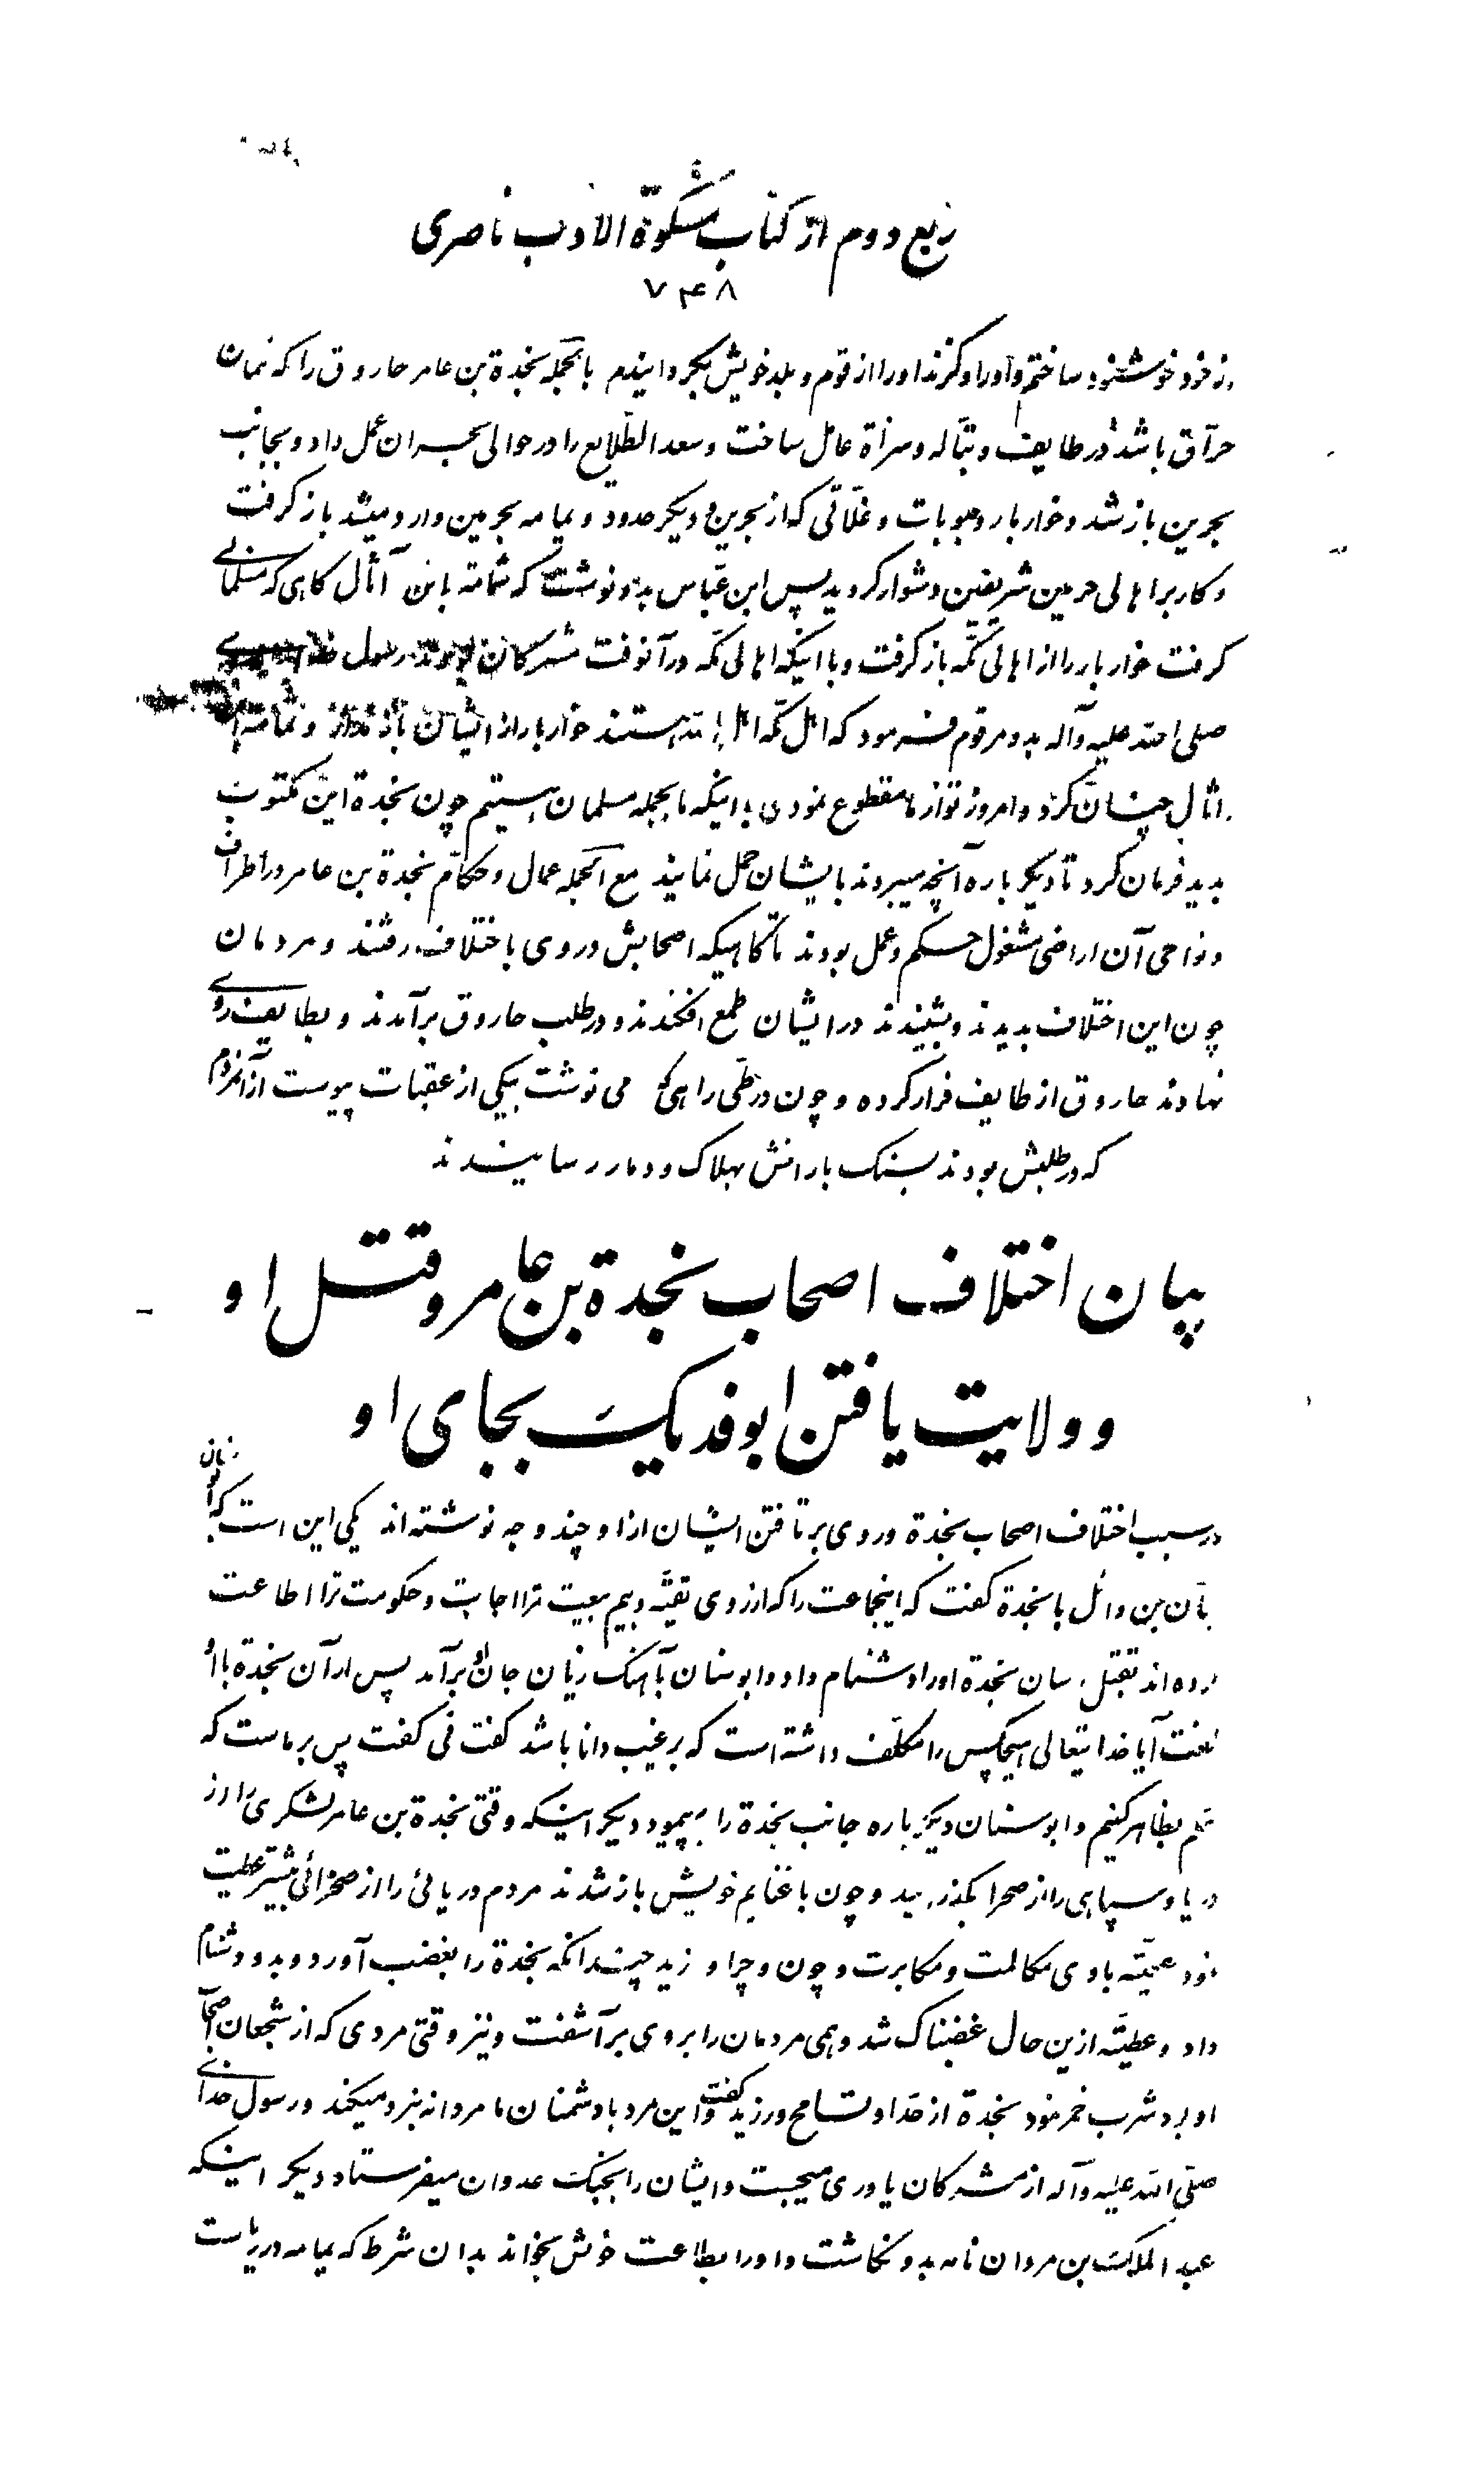 ربع دوم از کتاب مشکوة الادب ناصری
۷۴۸
از خود خوشنود ساختم و او را و گزند او را از قوم و بلد خویش بگردانیدم بالجمله نجدة بن عامر حاروق را که همان
حرّاق باشد در طایف و تباله و سراة عامل ساخت و سعد الطلایع را در حوالی نجران عمل داد و بجانب
بحرین باز شد و خواربار و حبوبات و غلّاتی که از بحرین و دیگر حدود و یمامه بحرمین وارد میشد باز گرفت
و کار بر اهالی حرمین شریفین دشوار گردید پس ابن عبّاس بدو نوشت که ثمامة بن آثال گاهی که مسلمانی
گرفت خواربار را از اهالی مکّه باز گرفت و با اینکه اهالی مکه در آنوقت مشرکان بودند رسول خدای
صلی الله علیه و آله بدو مرقوم فرمود که اهل مکّه اهل الله هستند خواربار از ایشان باز مدار و ثمامة بن
اثال چنان کرد و امروز تو از ما مقطوع نمودی با اینکه ما بجمله مسلمان هستیم چون نجدة این مکتوب
بدید فرمان کرد تا دیگر باره آنچه میبردند بایشان حمل نمایند مع الجمله عمال و حکّام نجدة بن عامر در اطراف
و نواحی آن اراضی مشغول حکم و عمل بودند تا گاهیکه اصحابش در وی باختلاف رفتند و مردمان
چون این اختلاف بدیدند و بشنیدند در ایشان طمع افکندند و در طلب حاروق برآمدند و بطایف روی
نهادند حاروق از طایف فرار کرده و چون در طی راهی که می نوشت بیکی از عقبات پیوست آنمردم
که در طلبش بودند بسنگ بارانش بهلاک و دمار رسانیدند
بیان اختلاف اصحاب نجدة بن عامر و قتل او
و ولایت یافتن ابو فدیک بجای او
در سبب اختلاف اصحاب نجدة و روی بر تافتن ایشان از او چند وجه نوشته اند یکی این است که ابو سنان
بان بن وائل با نجدة گفت که اینجماعت را که از روی تقیّه و بیم بیعت ترا اجابت و حکومت ترا اطاعت
کرده اند بقتل رسان نجدة او را دشنام داد و ابو سنان بآهنگ زیان جان او برآمد پس از آن نجدة با او
گفت آیا خدایتعالی هیچکس را مکلّف داشته است که بر غیب دانا باشد گفت نی گفت پس بر ماست که
حکم بظاهر کنیم و ابو سنان دیگر باره جانب نجدة را بپیمود دیگر اینکه وقتی نجدة بن عامر لشکری را از
دریا و سپاهی را از صحرا بگذرانید و چون با غنایم خویش باز شدند مردم دریائی را از صحرائی بیشتر عطیت
نمود عطیّه با وی مکالمت و مکابرت و چون و چرا ورزید چندانکه نجدة را بغضب آورد و بدو دشنام
داد و عطیّه ازین حال غضبناک شد و همی مردمان را بر وی برآشفت و نیز وقتی مردی که از شجعان اصحاب
او بود شرب خمر نمود نجدة از حدّ او تسامح ورزید و گفت این مرد با دشمنان ما مردانه نبرد میکند و رسول خدای
صلّی الله علیه و آله از مشرکان یاوری میجست و ایشان را بجنگ عدوان میفرستاد دیگر اینکه
عبد الملک بن مروان نامه بدو نگاشت و او را بطاعت خویش بخواند بدان شرط که یمامه در ریاست